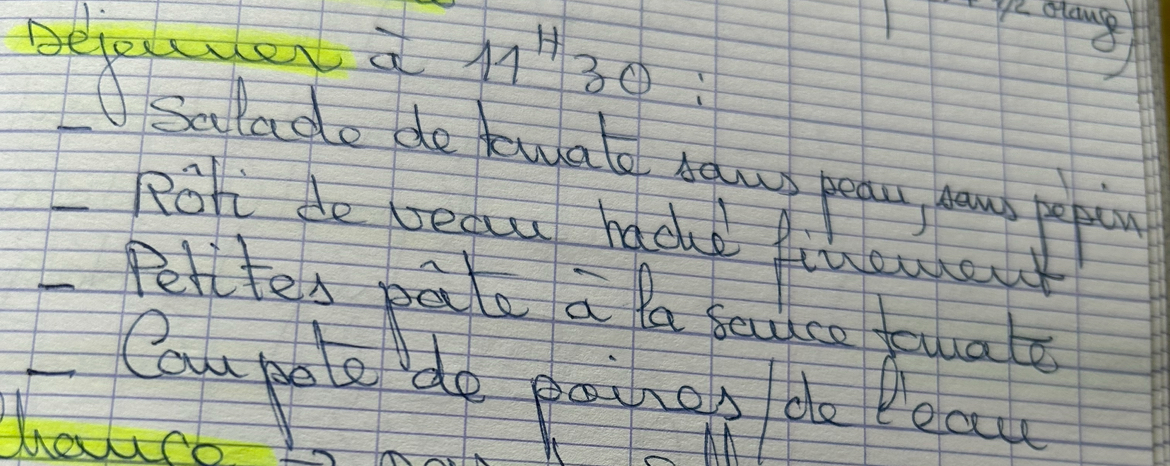 1/2 orange)
Déjeuner à 11H30 :
- Salade de tomate sans peau, sans pépin
- Rôti de veau haché finement
- Petites pâte à la sauce tomate
- Compote de poires / de l'eau